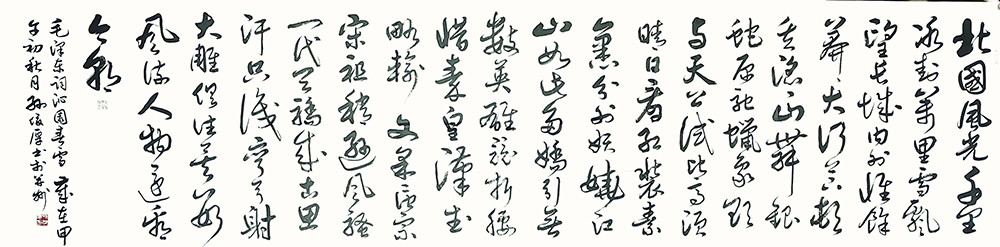 北國風光千里
冰封萬里雪飄
望長城内外惟餘
莽莽大河上下頓
失滔滔山舞銀
蛇原馳蠟象欲
與天公試比高須
晴日看紅裝素
裹分外妖嬈江
山如此多嬌引無
數英雄競折腰
惜秦皇漢武
略輸文采唐宗
宋祖稍遜風騷
一代天驕成吉思
汗只識彎弓射
大雕俱往矣數
風流人物還看
今朝
毛澤東詞沁園春雪 歲在甲
午初秋月孫